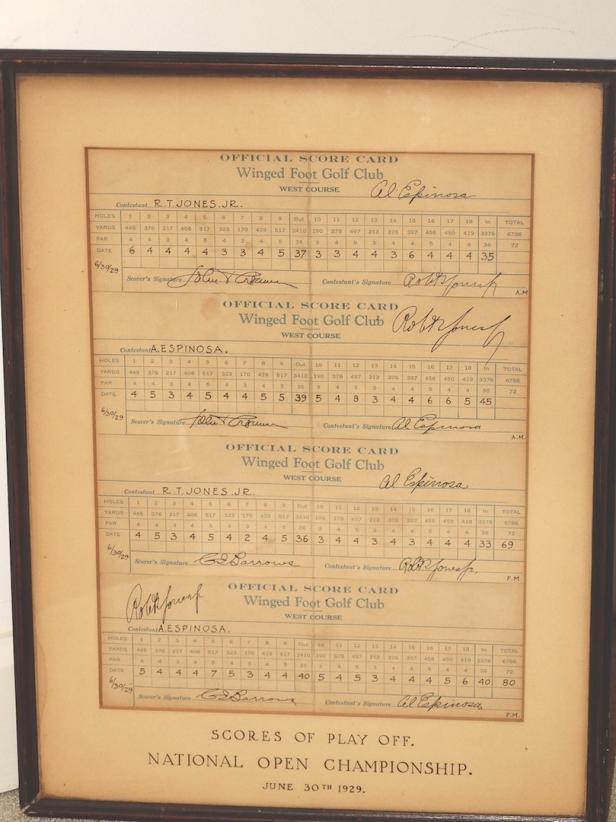 OFFICIAL SCORE CARD
Winged Foot Golf Club
WEST COURSE
Al Espinosa
Contestant R.T. JONES, JR.
HOLES 1 2 3 4 5 6 7 8 9 Out 10 11 12 13 14 15 16 17 18 In TOTAL
YARDS 376 217 517 170 517 3410 190 378 212 456 450 6786
PAR 72
DATE 6 4 4 4 4 3 3 4 5 37 3 3 4 4 3 6 4 4 4 35
6/30/29
Scorer's Signature Contestant's Signature Rob't T Jones Jr
A.M.
OFFICIAL SCORE CARD
Winged Foot Golf Club
WEST COURSE
Rob't T Jones Jr
Contestant A. ESPINOSA.
HOLES 1 2 3 4 5 6 7 8 9 Out 10 11 12 13 14 15 16 17 18 In TOTAL
YARDS 376 217 517 170 517 3410 190 378 212 456 450 6786
PAR 72
DATE 4 5 3 4 5 4 4 5 5 39 5 4 8 3 4 4 6 6 5 45
6/30/29
Scorer's Signature Contestant's Signature Al Espinosa
A.M.
OFFICIAL SCORE CARD
Winged Foot Golf Club
WEST COURSE
Al Espinosa
Contestant R.T. JONES, JR.
HOLES 1 2 3 4 5 6 7 8 9 Out 10 11 12 13 14 15 16 17 18 In TOTAL
YARDS 376 217 517 170 517 3410 190 378 212 456 450 6786
PAR 72
DATE 4 5 3 4 5 4 2 4 5 36 3 4 4 3 4 3 4 4 4 33 69
6/30/29
Scorer's Signature C G Barrows Contestant's Signature Rob't T Jones Jr.
P.M.
OFFICIAL SCORE CARD
Winged Foot Golf Club
WEST COURSE
Rob't T Jones Jr
Contestant A. ESPINOSA.
HOLES 1 2 3 4 5 6 7 8 9 Out 10 11 12 13 14 15 16 17 18 In TOTAL
YARDS 376 217 517 170 517 3410 190 378 212 456 450 6786
PAR 72
DATE 5 4 4 4 7 5 3 4 4 40 5 4 5 3 4 4 4 5 6 40 80
6/30/29
Scorer's Signature C G Barrows Contestant's Signature Al Espinosa
P.M.
SCORES OF PLAY OFF.
NATIONAL OPEN CHAMPIONSHIP.
JUNE 30TH 1929.